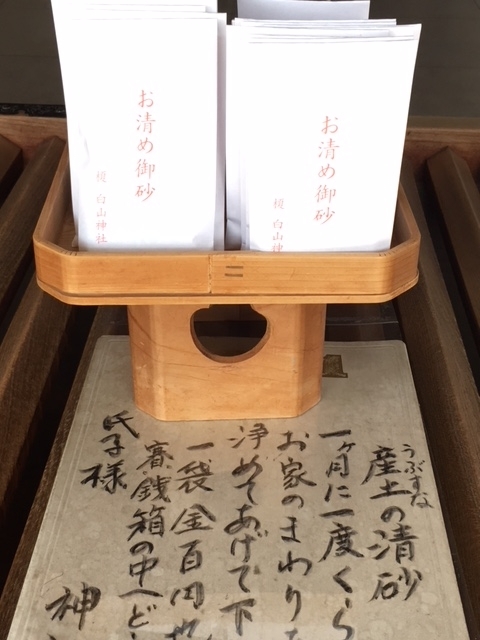 お清め御砂
榎 白山神社
お清め御砂
榎 白山神
うぶすな
産土の清砂
一ヶ月に一度くら
お家のまわりを
浄めてあげて下
一袋金百円也
賽銭箱の中へど
氏子様
神